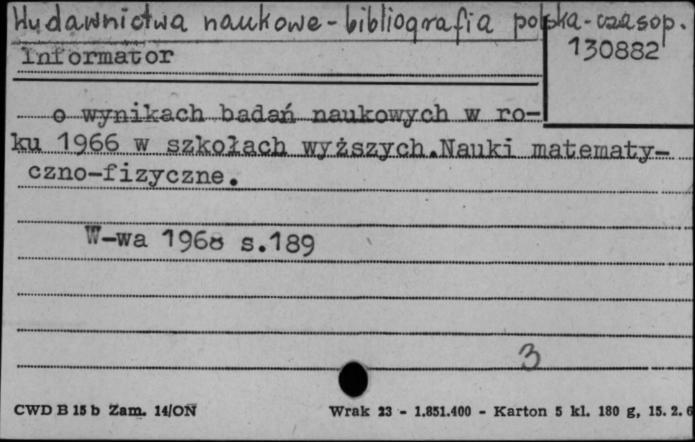 Wydawnictwa naukowe - bibliografia polska - czasop.
130882
Informator
o wynikach badań naukowych w ro-
ku 1966 w szkołach wyższych.Nauki matematy-
czno-fizyczne.
W-wa 1968 s.189
3
CWD B 15 b Zam. 14/ON
Wrak 23 - 1.851.400 - Karton 5 kl. 180 g, 15. 2. 6